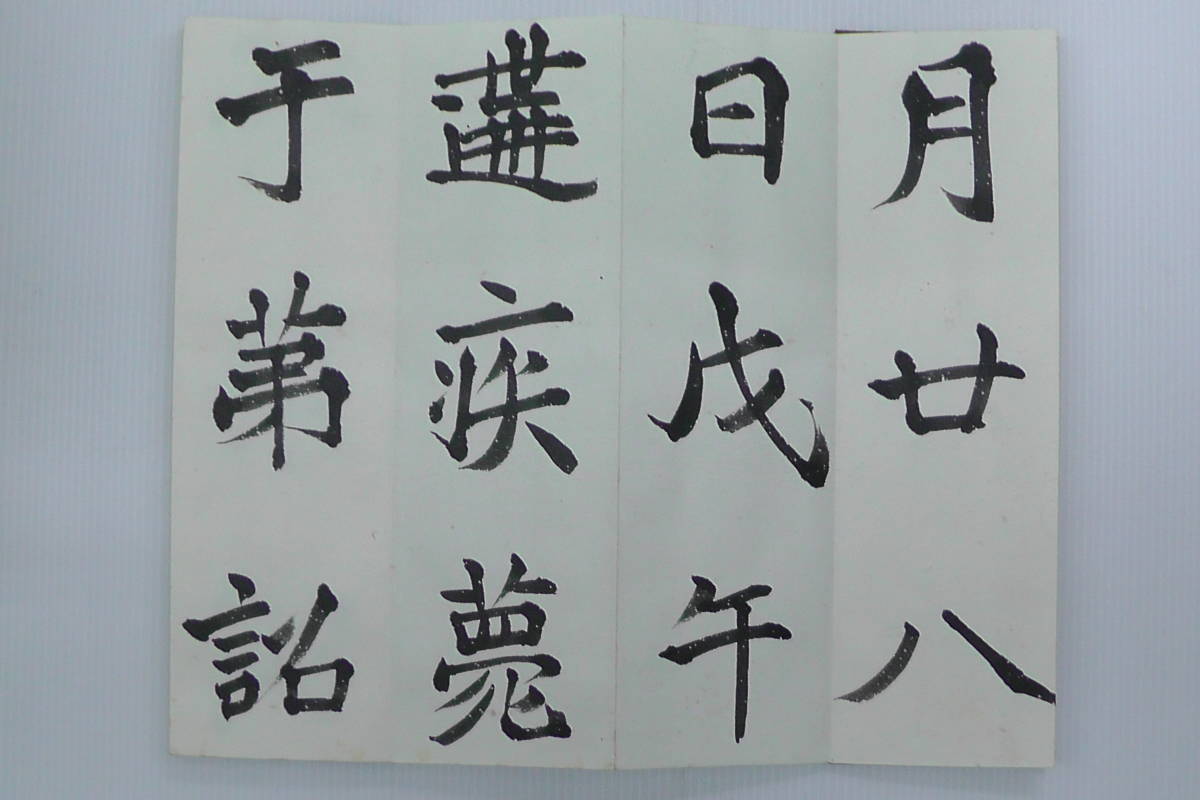 月廿八
日戊午
遘疾薨
于苐詔